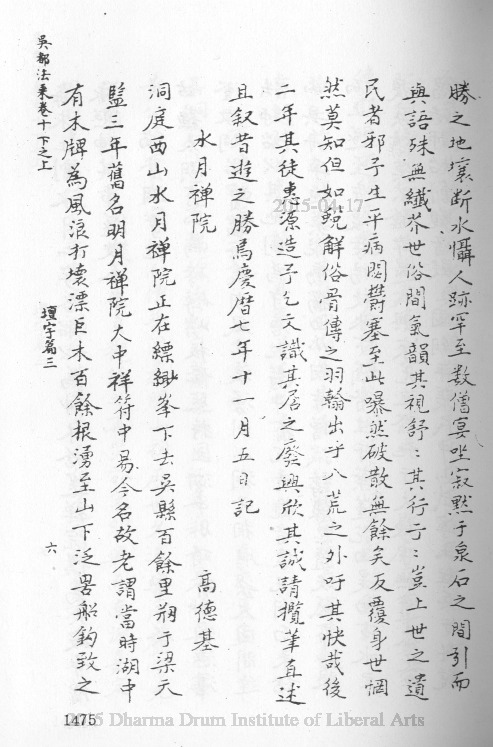 勝之地壤断水懾人跡罕至数僧宴坐寂默于泉石之間引而
與語殊無纖芥世俗間氣韻其視舒:其行于:豈上世之遺
民者邪予生平病閟欝塞至此㬥然破散無餘矣反覆身世惘
然莫知但如蛻解俗骨傅之羽翰出乎八荒之外吁其快哉後
二年其徒惠源造予乞文識其居之廢興欣其誠請攬筆直述
且叙昔遊之勝焉慶曆七年十一月五日記
水月禅院 高德基
洞庭西山水月禅院正在縹緲峯下去吳縣百餘里剏于梁天
監三年舊名明月禅院大中祥符中易今名故老謂當時湖中
有木牌為風浪打壞漂巨木百餘根湧至山下泛罟船鈎致之
吳都法乗卷十下之上 壇宇篇三 六
2015-04-17
1475
Dharma Drum Institute of Liberal Arts